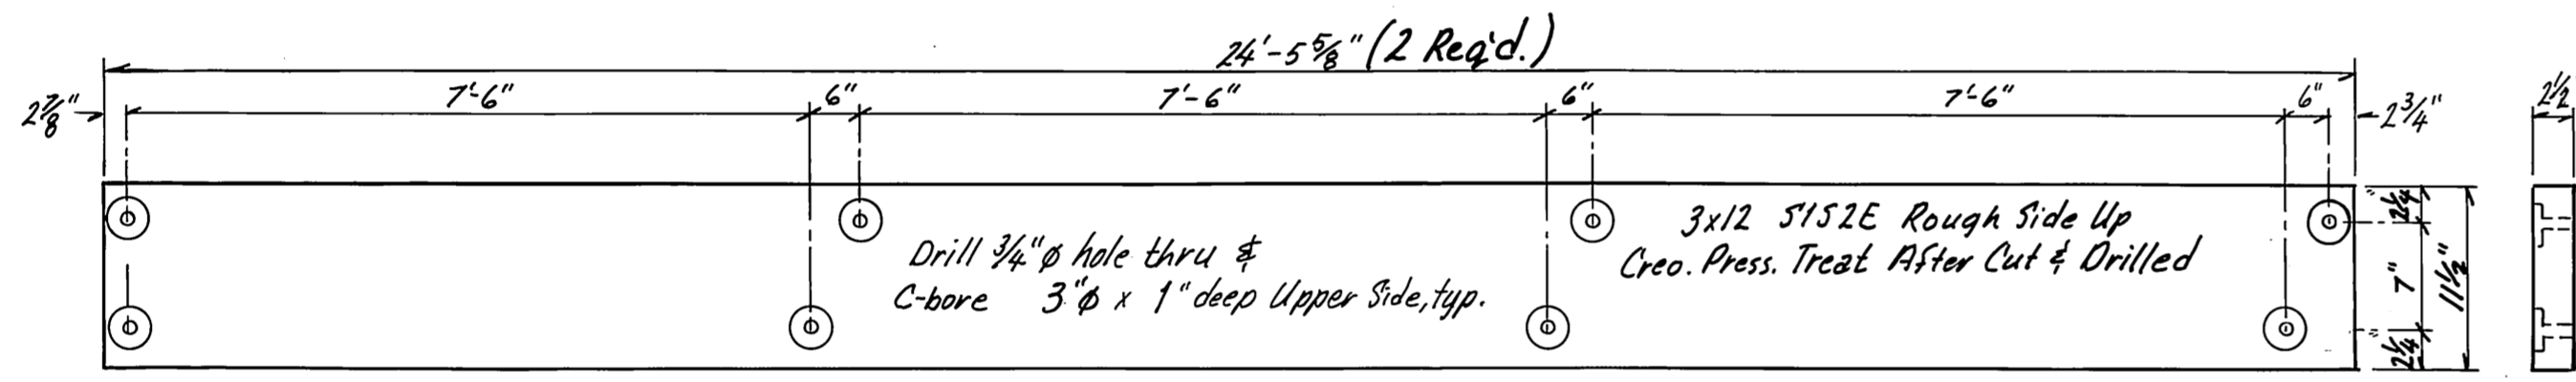 24'-5 5/8" (2 Req'd.)
2 7/8" 7'-6" 6" 7'-6" 6" 7'-6" 6" 2 3/4" 2 1/2
Drill 3/4"ø hole thru &
C-bore 3"ø x 1" deep Upper Side, typ.
3x12 S1S2E Rough Side Up
Creo. Press. Treat After Cut & Drilled
2 1/4"
7"
2 1/4"
11 1/2"